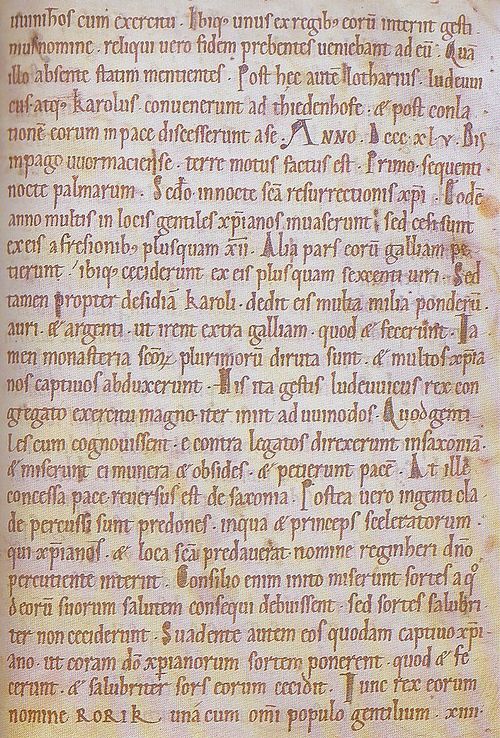 uuinithos cum exercitu . Ibiq; unus ex regib; eorū interiit gesti
mus nomine . reliqui uero fidem prebentes ueniebant ad eū . Qua
illo absente statim mentientes . Post hec autē Hlotharius . Ludeuui
cus atq; Karolus . conuenerunt ad thiedenhofe . & post conla
tionē eorum in pace discesserunt a se . ANNO . Dccc xlv . Bis
in pago uuormaciense . terre motus factus est . Primo . sequenti
nocte palmarum . Scdo in nocte scā resurrectionis xp̄i . Eodē
anno multis in locis gentiles xp̄ianos inuaserunt . sed cesi sunt
ex eis a fresionib; plusquam xii . Alia pars eorū galliam pe
tierunt . ibiq; ceciderunt ex eis plus quam sexcenti uiri . Sed
tamen propter desidiā Karoli . dedit eis multa milia ponderū .
auri . & argenti . ut irent extra galliam . quod & fecerunt . Ta
men monasteria scōꝝ plurimorū diruta sunt . & multos xp̄ia
nos captiuos abduxerunt . His ita gestis ludeuuicus rex con
gregato exercitu magno iter iniit ad uuinodos . Quod genti
les cum cognouissent . e contra legatos direxerunt in saxoniā .
& miserunt ei munera & obsides . & petierunt pacē . At ille
concessa pace reuersus est de saxonia . Postea uero ingenti cla
de percussi sunt predones . in qua & princeps sceleratorum .
qui xp̄ianos . & loca scā predauerat . nomine reginheri dn̄o
percutiente interiit . Consilio enim inito miserunt sortes a qͦ
deorū suorum salutem consequi debuissent . sed sortes salubri
ter non ceciderunt . Suadente autem eos quodam captiuo xp̄i
ano . ut coram dō xp̄ianorum sortem ponerent . quod & fe
cerunt . & salubriter sors eorum cecidit . Tunc rex eorum
nomine RORIK unā cum omī populo gentilium . xiiii .